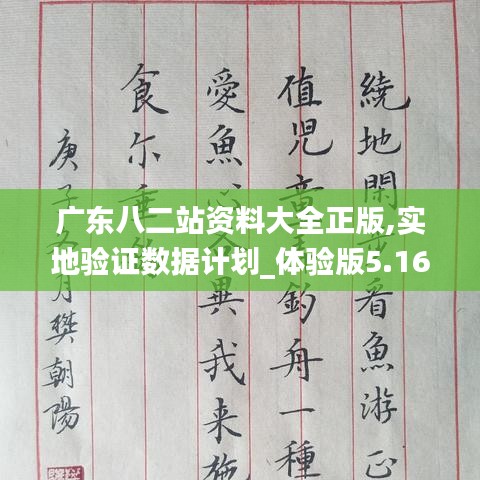 广东八二站资料大全正版,实
地验证数据计划_体验版5.16
繞地閒看魚游正
值兒童釣舟一種
愛魚心異我來施
食尔垂
庚子月樊朝陽